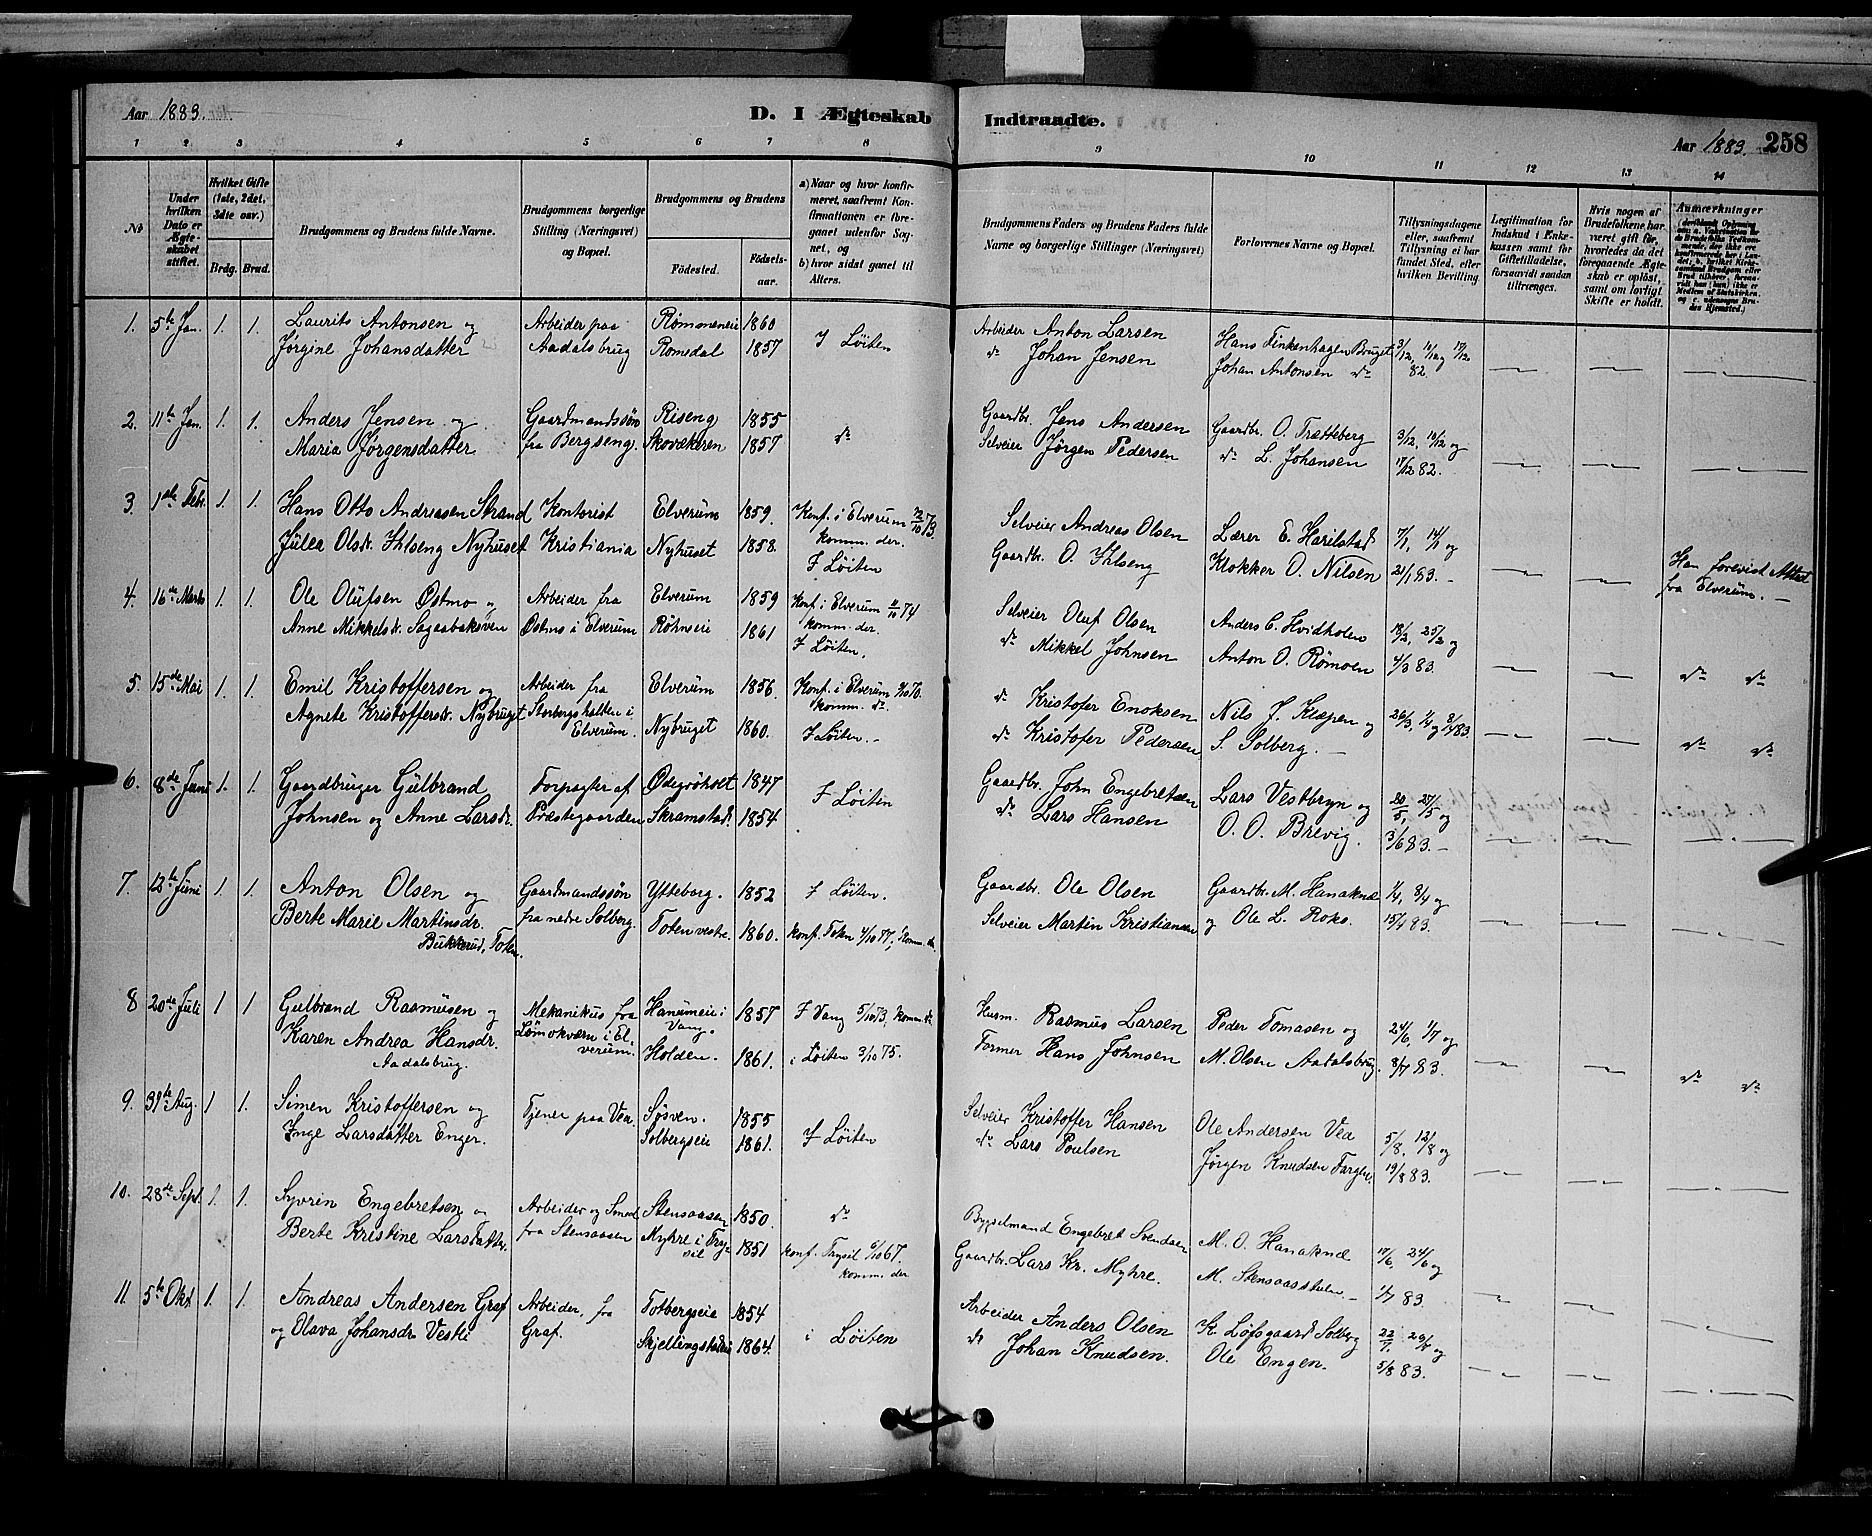 Aar 1883.
D. I Ægteskab Indtraadte.
Aar 1883. 258
1 2 3 4 5 6 7 8 9 10 11 12 13 14
No
Under hvilken Dato er Ægteskabet stiftet.
Hvilket Gifte (1ste, 2det, 3dte osv.)
Brdg. Brud.
Brudgommens og Brudens fulde Navne.
Brudgommens borgerlige Stilling (Næringsvei) og Bopæl.
Brudgommens og Brudens
Födested.
Födsels-aar.
a) Naar og hvor konfirmeret, saafremt Konfirmationen er foregaaet udenfor Sognet, og
b) hvor sidst gaaet til Alters.
Brudgommens Faders og Brudens Faders fulde Navne og borgerlige Stillinger (Næringsvei)
Forlovernes Navne og Bopæl.
Tillysningsdagene eller, saafremt Tillysning ei har fundet Sted, efter hvilken Bevilling
Legitimation for Indskud i Enkekassen samt for Giftetilladelse, forsaavidt saadan tiltrænges.
Hvis nogen af Brudefolkene har været gift før, hvorledes da det foregaaende Ægteskab er oplöst, samt om lovligt Skifte er holdt.
Anmærkninger
1. 5te Jan. 1. 1. Laurits Antonsen og Arbeider paa Rømmeneie 1860 Arbeider Anton Larsen Hans Finkenhagen Bruget 3/12, 10/12 og 17/12
Jørgine Johansdatter Aadalsbrug Romsdal 1857 I Löiten do Johan Jensen Johan Antonsen do 82.
2. 11te Jan. 1. 1. Anders Jensen og Gaardmandssøn Riseng 1855 Gaardbr. Jens Andersen Gaardbr. O. Trætteberg 3/12, 10/12 og
Maria Jørgensdatter fra Bergseng. Skovækren 1857 do Selveier Jørgen Pedersen do L. Johansen 17/12 82.
3. 1ste Febr. 1. 1. Hans Otto Andreasen Strand Kontorist Elverum 1859. Konf. i Elverum 12/10 73. komm. der. Selveier Andreas Olsen Lærer E. Harilstad 7/1, 14/1 og
Julea Olsdr. Ihlseng Nyhuset Kristiania Nyhuset 1858. I Löiten Gaardbr. O. Ihlseng Klokker O. Nilsen 21/1 83. Han forevist Attest fra Elverum.
4. 16de Marts 1. 1. Ole Olufsen Østmo og Arbeider fra Elverum 1859 Konf. i Elverum 11/10 74 komm. der. Selveier Oluf Olsen Anders C. Hvidholen 18/2, 25/2 og
Anne Mikkelsdr. Sagaabakken Østmo i Elverum Røhneeie 1861 I Löiten. do Mikkel Johnsen Anton O. Rømoen 4/3 83. do do
5. 15de Mai 1. 1. Emil Kristoffersen og Arbeider fra Elverum 1856. Konf. i Elverum 9/10 70. komm. do do Kristofer Enoksen Nils J. Klæpen og 26/3, 1/4 og 8/4 83.
Agnete Kristoffersdr. Nybruget Storbergshalten i Elverum. Nybruget 1860. I Löiten. do Kristofer Pedersen S. Solberg. do do
6. 8de Juni 1. 1. Gaardbruger Gulbrand Forpagter af Ødegröholt 1847 Gaardbr. John Engebretsen Lars Vestbryn og 20/5, 27/5 og
Johnsen og Anne Larsdr. Præstegaarden Skramstad 1854 I Löiten do Lars Hansen O. O. Brevig. 3/6 83.
7. 12te Juni 1. 1. Anton Olsen og Gaardmandssøn Ytteborg. 1852 I Löiten. Gaardbr. Ole Olsen Gaardbr. M. Hanaknæ 1/4, 8/4 og
Berte Marie Martinsdr. fra nedre Solberg. Toten vestre. 1860. konf. Toten 4/10 77, komm. do Selveier Martin Kristiansen og Ole L. Roko. 15/4 83.
Bukkerud, Toten.
8 20de Juli 1 1 Gulbrand Rasmusen og Mekanikus fra Hanumeie i Vang. 1857 I Vang 5/10 73, komm. do Husm. Rasmus Larsen Peder Tomasen og 24/6, 1/7 og
Karen Andrea Hansdr. Lömokvern i Elverum. Holden. 1861. i Löiten 3/10 75. Former Hans Johnsen M. Olsen Aadalsbrug. 8/7 83. do do
Aadalsbrug.
9. 31te Aug. 1 1. Simen Kristoffersen og Tjener paa Vea Søsven. 1855 Selveier Kristoffer Hansen Ole Andersen Vea 5/8, 12/8 og
Inge Larsdatter Enger. Solbergseie 1861. I Löiten do Lars Poulsen Jørgen Knudsen 19/8 83.
10. 28de Sept. 1. 1. Syvrin Engebretsen og Arbeider og Smed Stensaasen 1850. do Bygselmand Engebret Svendsen M. O. Hanaknæ 17/6, 24/6 og
Berte Kristine Larsdatter. fra Stensaasen Myhre i Trysil 1851 konf. Trysil 6/10 67. komm. der Gaardbr. Lars Kr. Myhre. M. Stensaashulen. 1/7 83.
11. 5te Okt 1. 1. Andreas Andersen Graf Arbeider, fra Totbergseie 1854 Arbeider Anders Olsen K. Løfsgaard Solberg 22/7, 29/7 og
og Olava Johansdr. Vestli Graf. Skjellingstadeie 1864. i Löiten do Johan Knudsen. Ole Engen. 5/8 83.